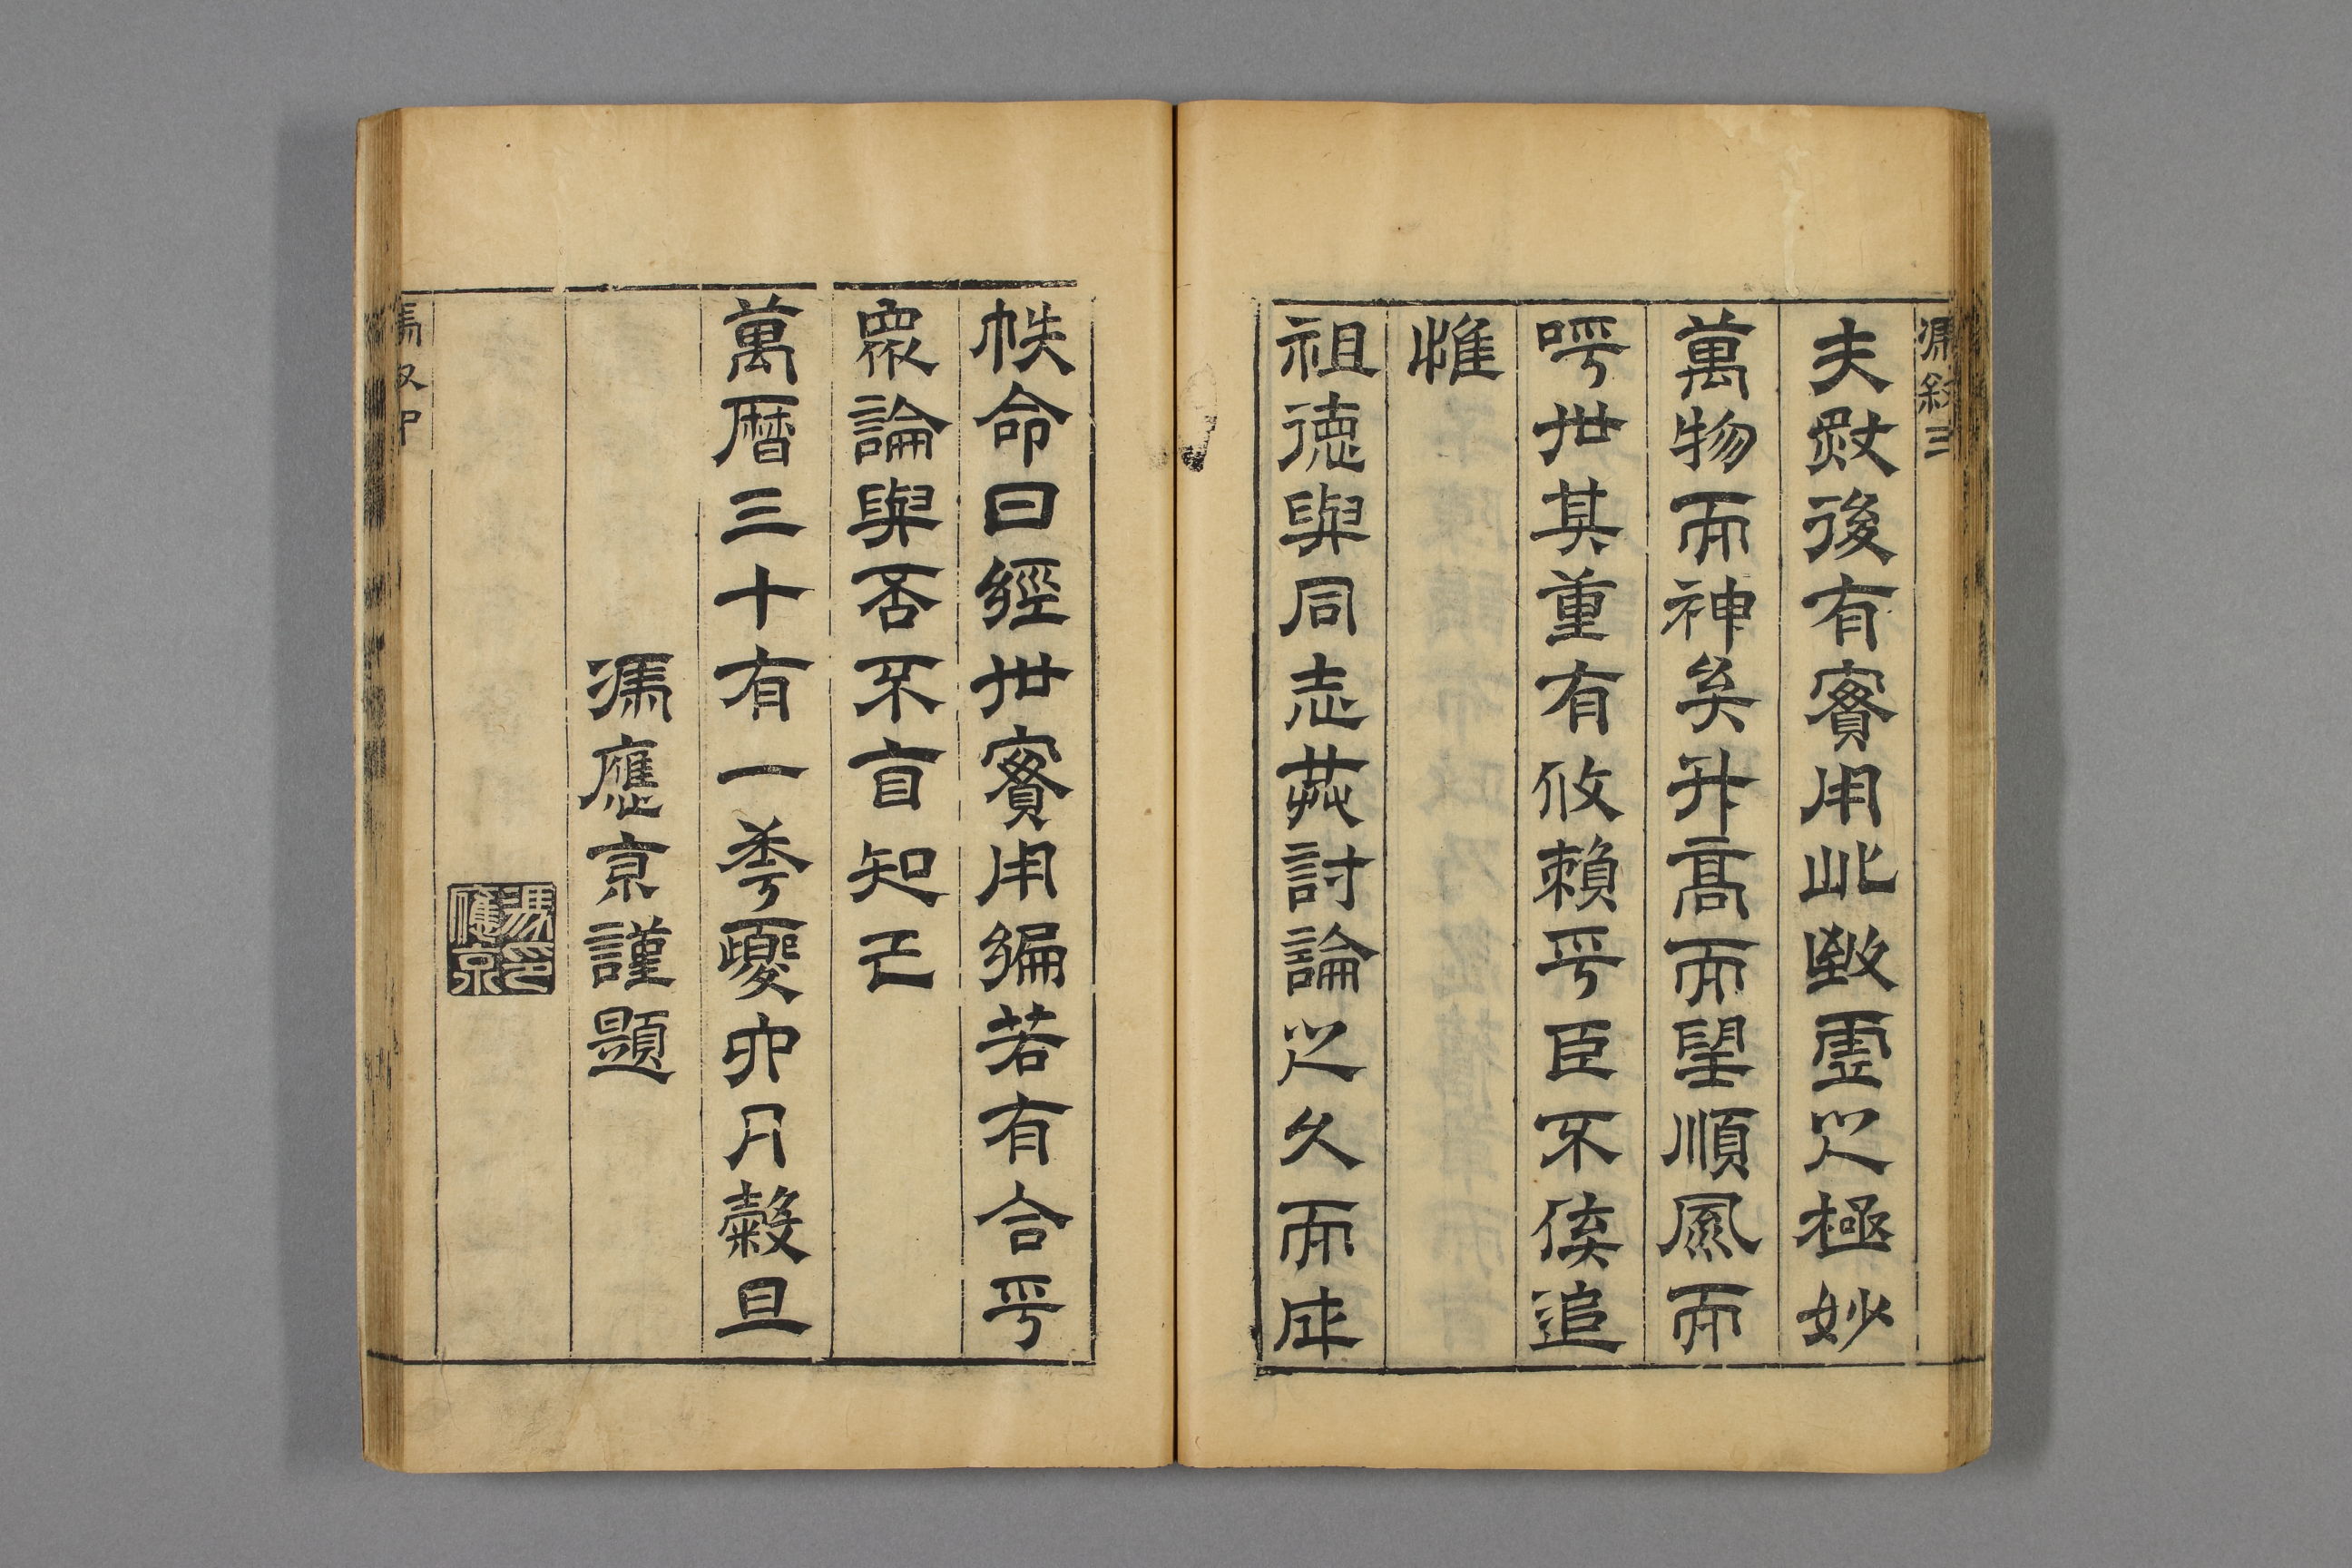 馮敘 三
夫然後有實用此致靈之極妙
萬物而神矣升高而望順風而
呼世其重有攸賴乎臣不俟追
惟
祖德與同志共討論之久而成
帙命曰經世實用編若有合乎
眾論與否不自知已
萬曆三十有一年夏四月穀旦
馮應京謹題
馮印應京